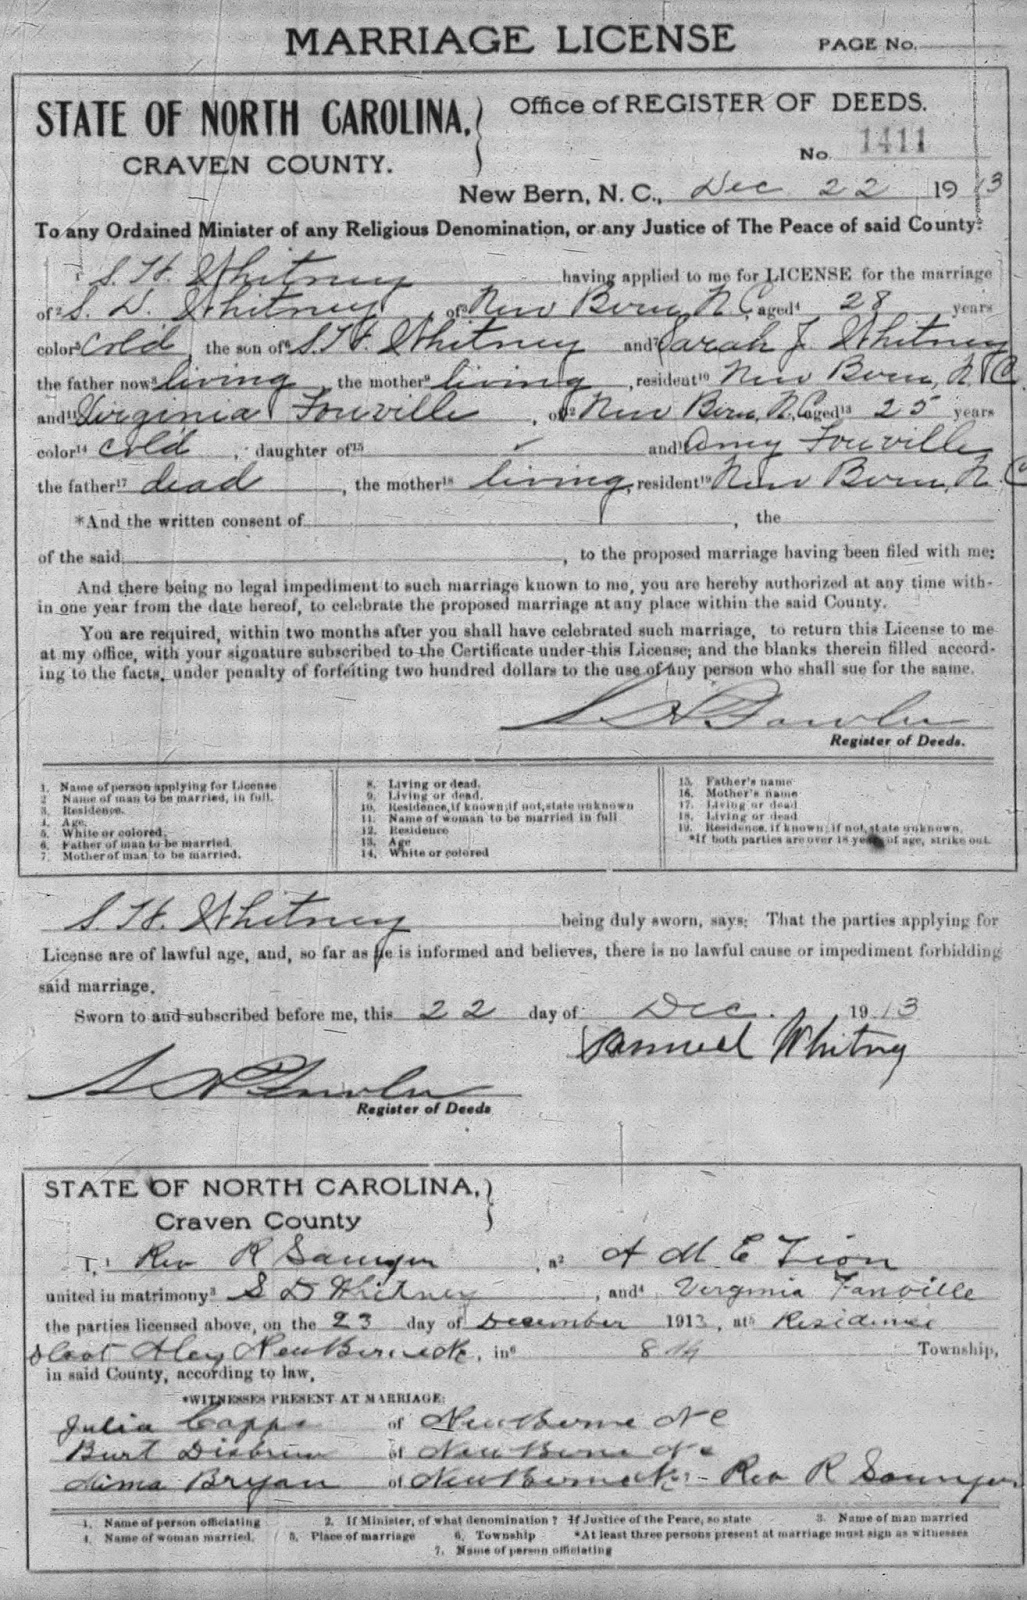 MARRIAGE LICENSE PAGE No.
STATE OF NORTH CAROLINA, Office of REGISTER OF DEEDS.
CRAVEN COUNTY. No. 1411
New Bern, N. C., Dec 22 1913
To any Ordained Minister of any Religious Denomination, or any Justice of The Peace of said County:
1 S. H. Whitney having applied to me for LICENSE for the marriage
of 2 S. D. Whitney, of 3 New Bern, N. C, aged 4 28 years
color 5 cold, the son of 6 S. H. Whitney and 7 Sarah J. Whitney
the father now 8 living, the mother 9 living, resident 10 New Bern, N. C.
and 11 Virginia Fonville, of 12 New Bern, N, C, aged 13 25 years
color 14 cold, daughter of 15 and 16 Amy Fonville
the father 17 dead, the mother 18 living, resident 19 New Bern, N. C
*And the written consent of , the
of the said , to the proposed marriage having been filed with me:
And there being no legal impediment to such marriage known to me, you are hereby authorized at any time with-
in one year from the date hereof, to celebrate the proposed marriage at any place within the said County.
You are required, within two months after you shall have celebrated such marriage, to return this License to me
at my office, with your signature subscribed to the Certificate under this License; and the blanks therein filled accord-
ing to the facts, under penalty of forfeiting two hundred dollars to the use of any person who shall sue for the same.
S. H. Fowler
Register of Deeds.
1. Name of person applying for License
2 Name of man to be married, in full.
3. Residence.
4. Age.
5. White or colored.
6. Father of man to be married.
7. Mother of man to be married.
8. Living or dead.
9. Living or dead.
10. Residence, if known; if not, state unknown
11. Name of woman to be married in full
12. Residence
13. Age
14. White or colored
15. Father's name
16. Mother's name
17. Living or dead
18. Living or dead
19. Residence, if known; if not, state unknown.
*If both parties are over 18 years of age, strike out.
S. H. Whitney being duly sworn, says: That the parties applying for
License are of lawful age, and, so far as he is informed and believes, there is no lawful cause or impediment forbidding
said marriage.
Sworn to and subscribed before me, this 22 day of Dec. 1913
Samuel Whitney
S. H. Fowler
Register of Deeds
STATE OF NORTH CAROLINA,
Craven County
I, 1 Rev R Sawyer, a 2 A M E Zion
united in matrimony 3 S D Whitney, and 4 Virginia Fanville
the parties licensed above, on the 23 day of December 1913, at 5 Residence
Aley New Berne NC, in 6 8th Township,
in said County, according to law,
*WITNESSES PRESENT AT MARRIAGE:
Julia Capps of New Berne NC
Burt of New Berne NC
Bryan of New Berne NC Rev R Sawyer
1. Name of person officiating 2. If Minister, of what denomination? If Justice of the Peace, so state 3. Name of man married
4. Name of woman married. 5. Place of marriage 6. Township *At least three persons present at marriage must sign as witnesses
7. Name of person officiating